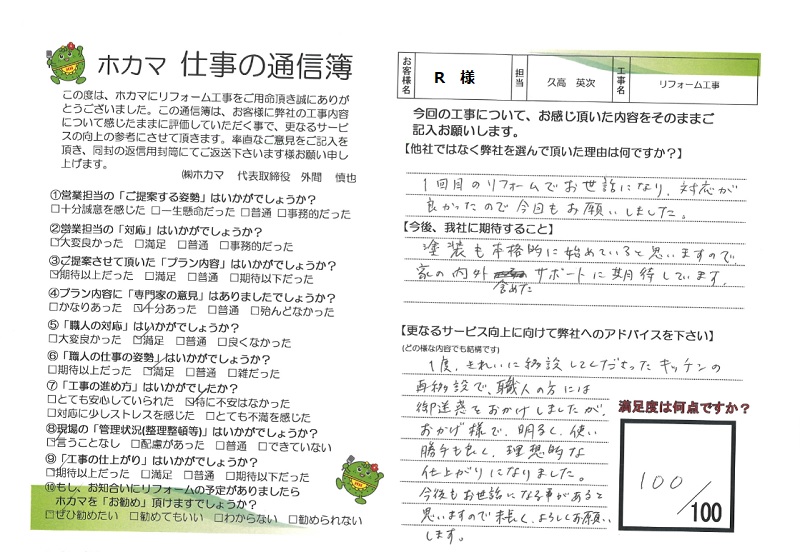 ホカマ 仕事の通信簿
この度は、ホカマにリフォーム工事をご用命頂き誠にありが
とうございました。この通信簿は、お客様に弊社の工事内容
について感じたままに評価していただく事で、更なるサービ
スの向上の参考にさせて頂きます。率直なご意見をご記入を
頂き、同封の返信用封筒にてご返送下さいます様お願い申し
上げます。
㈱ホカマ 代表取締役 外間 慎也
①営業担当の「ご提案する姿勢」はいかがでしょうか？
□十分誠意を感じた □一生懸命だった □普通 □事務的だった
②営業担当の「対応」はいかがでしょうか？
☑大変良かった □満足 □普通 □事務的だった
③ご提案させて頂いた「プラン内容」はいかがでしょうか？
☑期待以上だった □満足 □普通 □期待以下だった
④プラン内容に「専門家の意見」はありましたでしょうか？
□かなりあった ☑十分あった □普通 □殆んどなかった
⑤「職人の対応」はいかがでしょうか？
□大変良かった ☑満足 □普通 □良くなかった
⑥「職人の仕事の姿勢」はいかがでしょうか？
□期待以上だった ☑満足 □普通 □雑だった
⑦「工事の進め方」はいかがでしたか？
□とても安心していられた ☑特に不安はなかった
□対応に少しストレスを感じた □とても不満を感じた
⑧現場の「管理状況(整理整頓等)」はいかがでしょうか？
☑言うことなし □配慮があった □普通 □できていない
⑨「工事の仕上がり」はいかがでしょうか？
☑期待以上だった □満足 □普通 □期待以下だった
⑩もし、お知合いにリフォームの予定がありましたら
ホカマを「お勧め」頂けますでしょうか？
□ぜひ勧めたい □勧めてもいい □わからない □勧められない
お客様名 R 様 担当 久高 英次 工事名 リフォーム工事
今回の工事について、お感じ頂いた内容をそのままご
記入お願いします。
【他社ではなく弊社を選んで頂いた理由は何ですか？】
1回目のリフォームでお世話になり、対応が
良かったので今回もお願いしました。
【今後、我社に期待すること】
塗装も本格的に始めていると思いますので、
家の内外含めたサポートに期待しています。
【更なるサービス向上に向けて弊社へのアドバイスを下さい】
(どの様な内容でも結構です)
1度、きれいに移設してくださったキッチンの
再移設で、職人の方には
御迷惑をおかけしましたが、
おかげ様で、明るく、使い
勝手も良く、理想的な
仕上がりになりました。
今後もお世話になる事があると
思いますので末長く、よろしくお願い
します。
満足度は何点ですか？
100/100